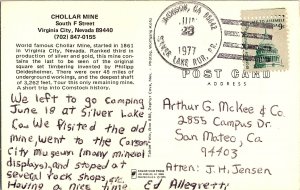 CHOLLAR MINE
South F Street
Virginia City, Nevada 89440
(702) 847-0155
World famous Chollar Mine, started in 1861
in Virginia City, Nevada. Ranked third in
production of silver and gold, this mine contains the last to be seen of the original
square set timbering invented by Philipp
Deidesheimer. There were over 45 miles of
underground workings, and the deepest shaft
of 3,262 feet. Two miners have stayed alive.
A short trip into Comstock history.
We left to go camping
June 18 at Silver Lake
Ca. We visited the old
mine went to the Carson
City museum (many mineral
displays), and stoped at
several rock shops, etc.
Having a nice time
Ed Allegretti
JACKSON, CA 95642
23
1977
SILVER LAKE RUR. BR.
POST CARD
ADDRESS
Arthur G. McKee & Co.
2855 Campus Dr.
San Mateo, Ca
94403
Atten: J.H. Jensen